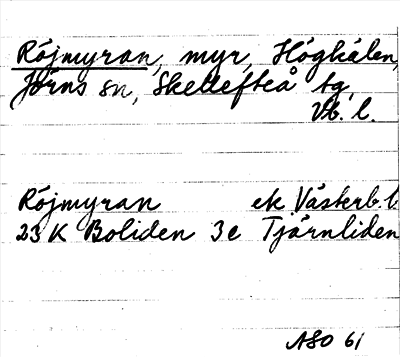 Röjmyran, myr, Högkälen,
Jörns sn, Skellefteå tg,
Vb. l.
Röjmyran ek Västerb. l.
23 K Boliden 3e Tjärnliden
ASO 61